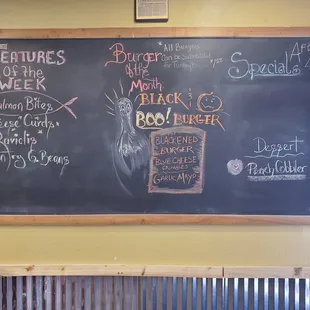 FEATURES
of the
WEEK
Salmon Bites
Cheese Curds
Ravioli
Beans
Burger
of the
Month
"All Burgers
Can be Substituted
for Turkey
BLACK &
BOO! BURGER
BLACKENED
BURGER
BLUE CHEESE
CRUMBLES
GARLIC MAYO
Special
Dessert
Peach Cobbler